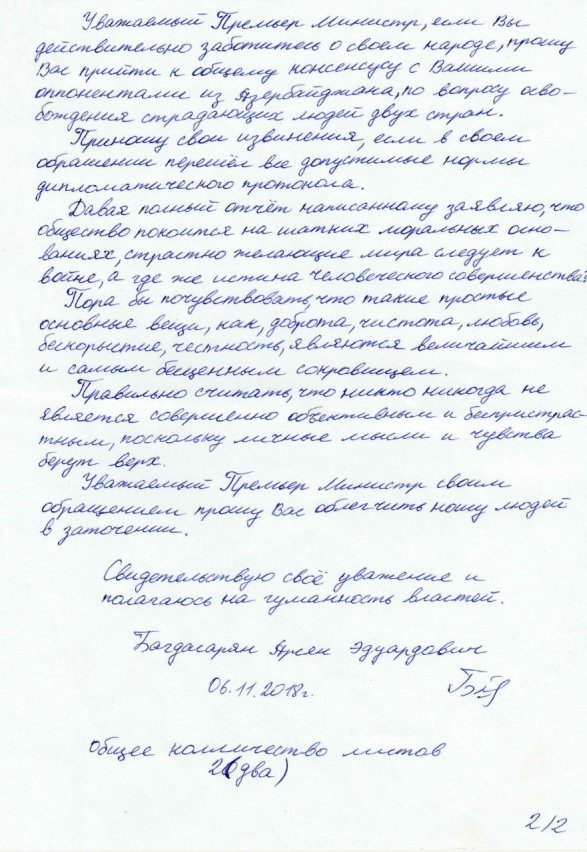 Уважаемый Премьер Министр, если Вы
действительно заботитесь о своем народе, прошу
Вас прийти к общему консенсусу с Вашими
оппонентами из Азербайджана, по вопросу осво-
бождения страдающих людей двух стран.
Приношу свои извинения, если в своем
обращении перешёл все допустимые нормы
дипломатического протокола.
Давая полный отчёт написанному заявляю, что
общество покоится на шатких моральных осно-
ваниях, страстно желающие мира следует к
войне, а где же истина человеческого совершенства?
Пора бы почувствовать, что такие простые
основные вещи, как, доброта, чистота, любовь,
бескорыстие, честность, являются величайшим
и самым бещенным сокровищем.
Правильно считать, что никто никогда не
является совершенно объективным и беспристрас-
тным, поскольку личные мысли и чувства
берут верх.
Уважаемый Премьер Министр своим
обращением прошу Вас облегчить ношу людей
в заточении.
Свидетельствую своё уважение и
полагаюсь на гуманность властей.
Багдасарян Арсен Эдуардович
06.11.2018г.
Общее колличество листов
2(два)
2/2